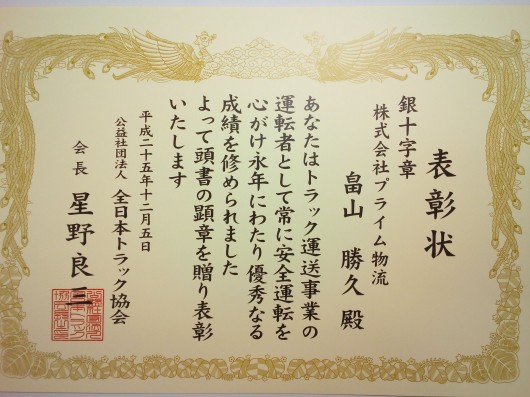 表彰状
銀十字章
株式会社プライム物流
畠山 勝久 殿
あなたはトラック運送事業の
運転者として常に安全運転を
心がけ永年にわたり優秀なる
成績を修められました
よって頭書の顕章を贈り表彰
いたします
平成二十五年十二月五日
公益社団法人 全日本トラック協会
会長 星野良三